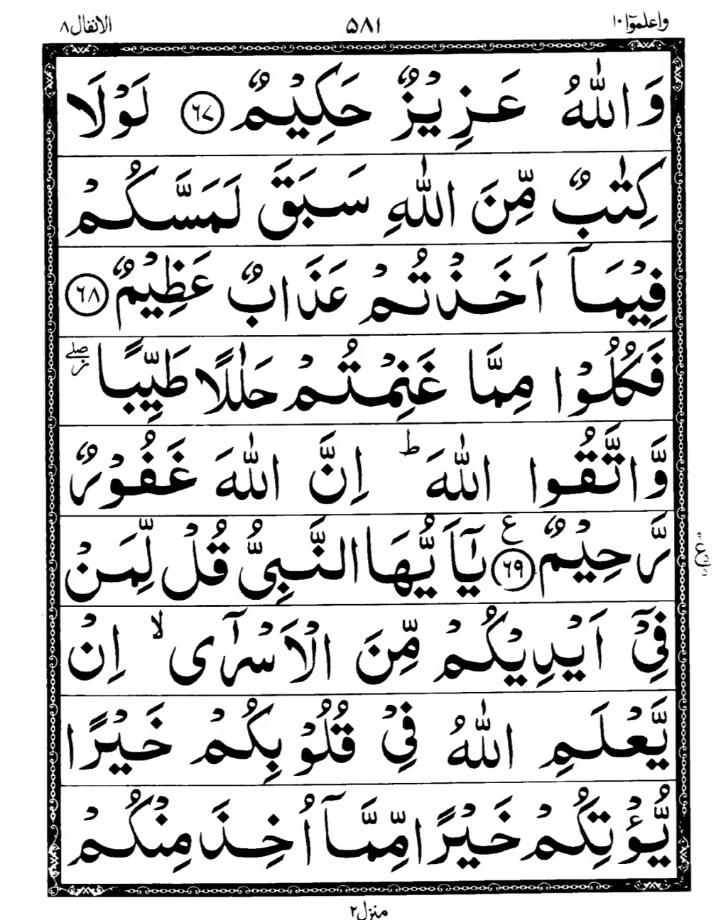 واعلموٓا١٠ ۵۸۱ الانفال٨
وَاللّٰهُ عَزِيْزٌ حَكِيْمٌ ﴿٦٧﴾ لَوْلَا
كِتٰبٌ مِّنَ اللّٰهِ سَبَقَ لَمَسَّكُمْ
فِيْمَاۤ اَخَذْتُمْ عَذَابٌ عَظِيْمٌ ﴿٦٨﴾
فَكُلُوْا مِمَّا غَنِمْتُمْ حَلٰلًا طَيِّبًا ۖز
وَّاتَّقُوا اللّٰهَ ؕ اِنَّ اللّٰهَ غَفُوْرٌ
رَّحِيْمٌ ﴿٦٩﴾ ع يٰۤاَيُّهَا النَّبِىُّ قُلْ لِّمَنْ
فِىْۤ اَيْدِيْكُمْ مِّنَ الْاَسْرٰٓى ۙ اِنْ
يَّعْلَمِ اللّٰهُ فِىْ قُلُوْبِكُمْ خَيْرًا
يُّؤْتِكُمْ خَيْرًا مِّمَّاۤ اُخِذَ مِنْكُمْ
منزل٢